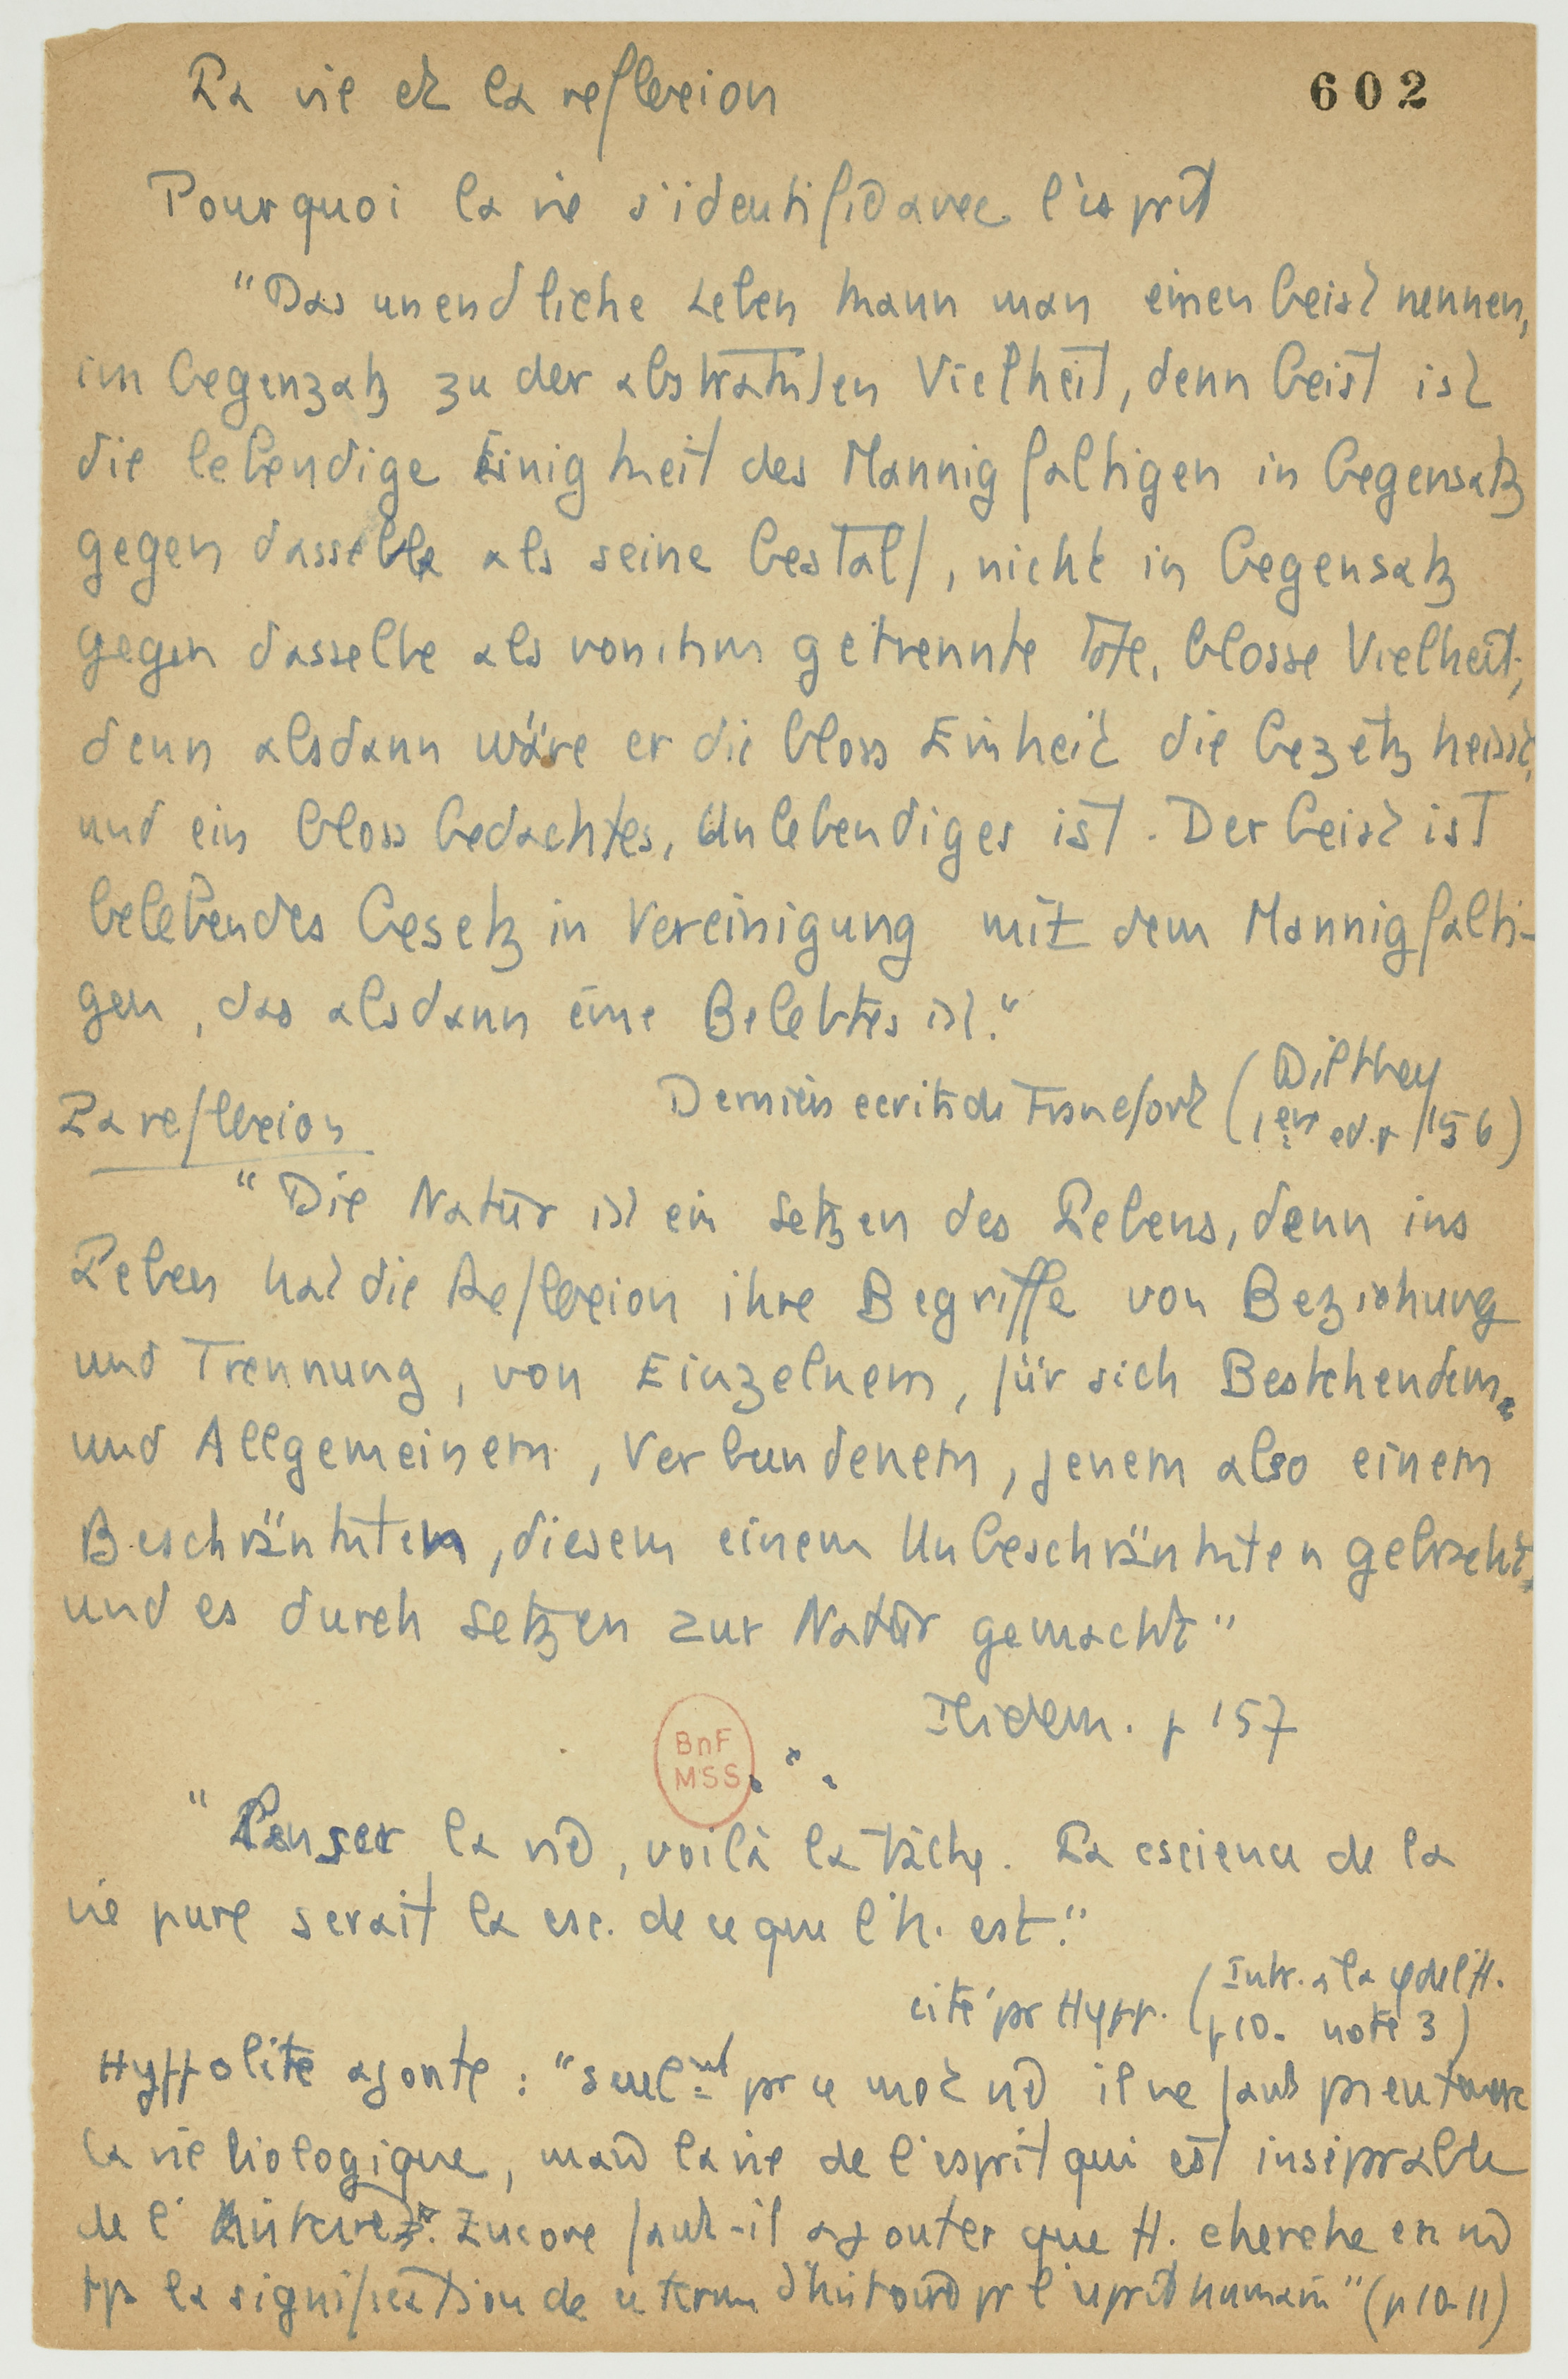 La vie et la reflexion
602
Pourquoi la vie s'identifie avec l'esprit
"Das unendliche Leben kann man einen Geist nennen,
im Gegenzatz zu der abstrakten Vielheit, denn Geist ist
die lebendige Einigkeit des Mannigfaltigen in Gegensatz
gegen dasselbe als seine Gestalt, nicht in Gegensatz
gegen dasselbe als von ihm getrennte Tote, blosse Vielheit;
denn alsdann wäre er die bloss Einheit die Gezetz heisst,
und ein bloss Gedachtes, Unlebendiges ist. Der Geist ist
belebendes Gesetz in Vereinigung mit dem Mannigfalti-
gen, das alsdann eine Belebtes ist."
Derniers ecrits de Francfort (Dilthey
1ere ed. p 156)
La reflexion
"Die Natur ist ein Setzen des Lebens, denn ins
Leben hat die Reflexion ihre Begriffe von Beziehung
und Trennung, von Einzelnem, für sich Bestehendem,
und Allgemeinem, Verbundenem, jenem also einem
Beschränkten, diesem einem Unbeschränkten gebracht,
und es durch Setzen zur Natur gemacht"
Ibidem. p 157
BnF
MSS
"Penser la vie, voilà la tâche. La cscience de la
vie pure serait la csc. de ce que l'h. est."
cité pr Hypp. (Intr. a la φ de l'H.
p 10. note 3)
Hyppolite ajoute: "seulnt pr ce mot vie il ne faut pas entendre
la vie biologique, mais la vie de l'esprit qui est inséparable
de l'histoire". Encore faut-il ajouter que H. cherche en m
tps la signification de ce terme d'histoire pr l'esprit humain" (p 10-11)